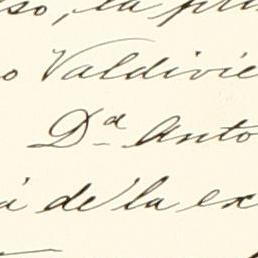 so, la pri
o Valdivie
Dª Anto
á de la ex